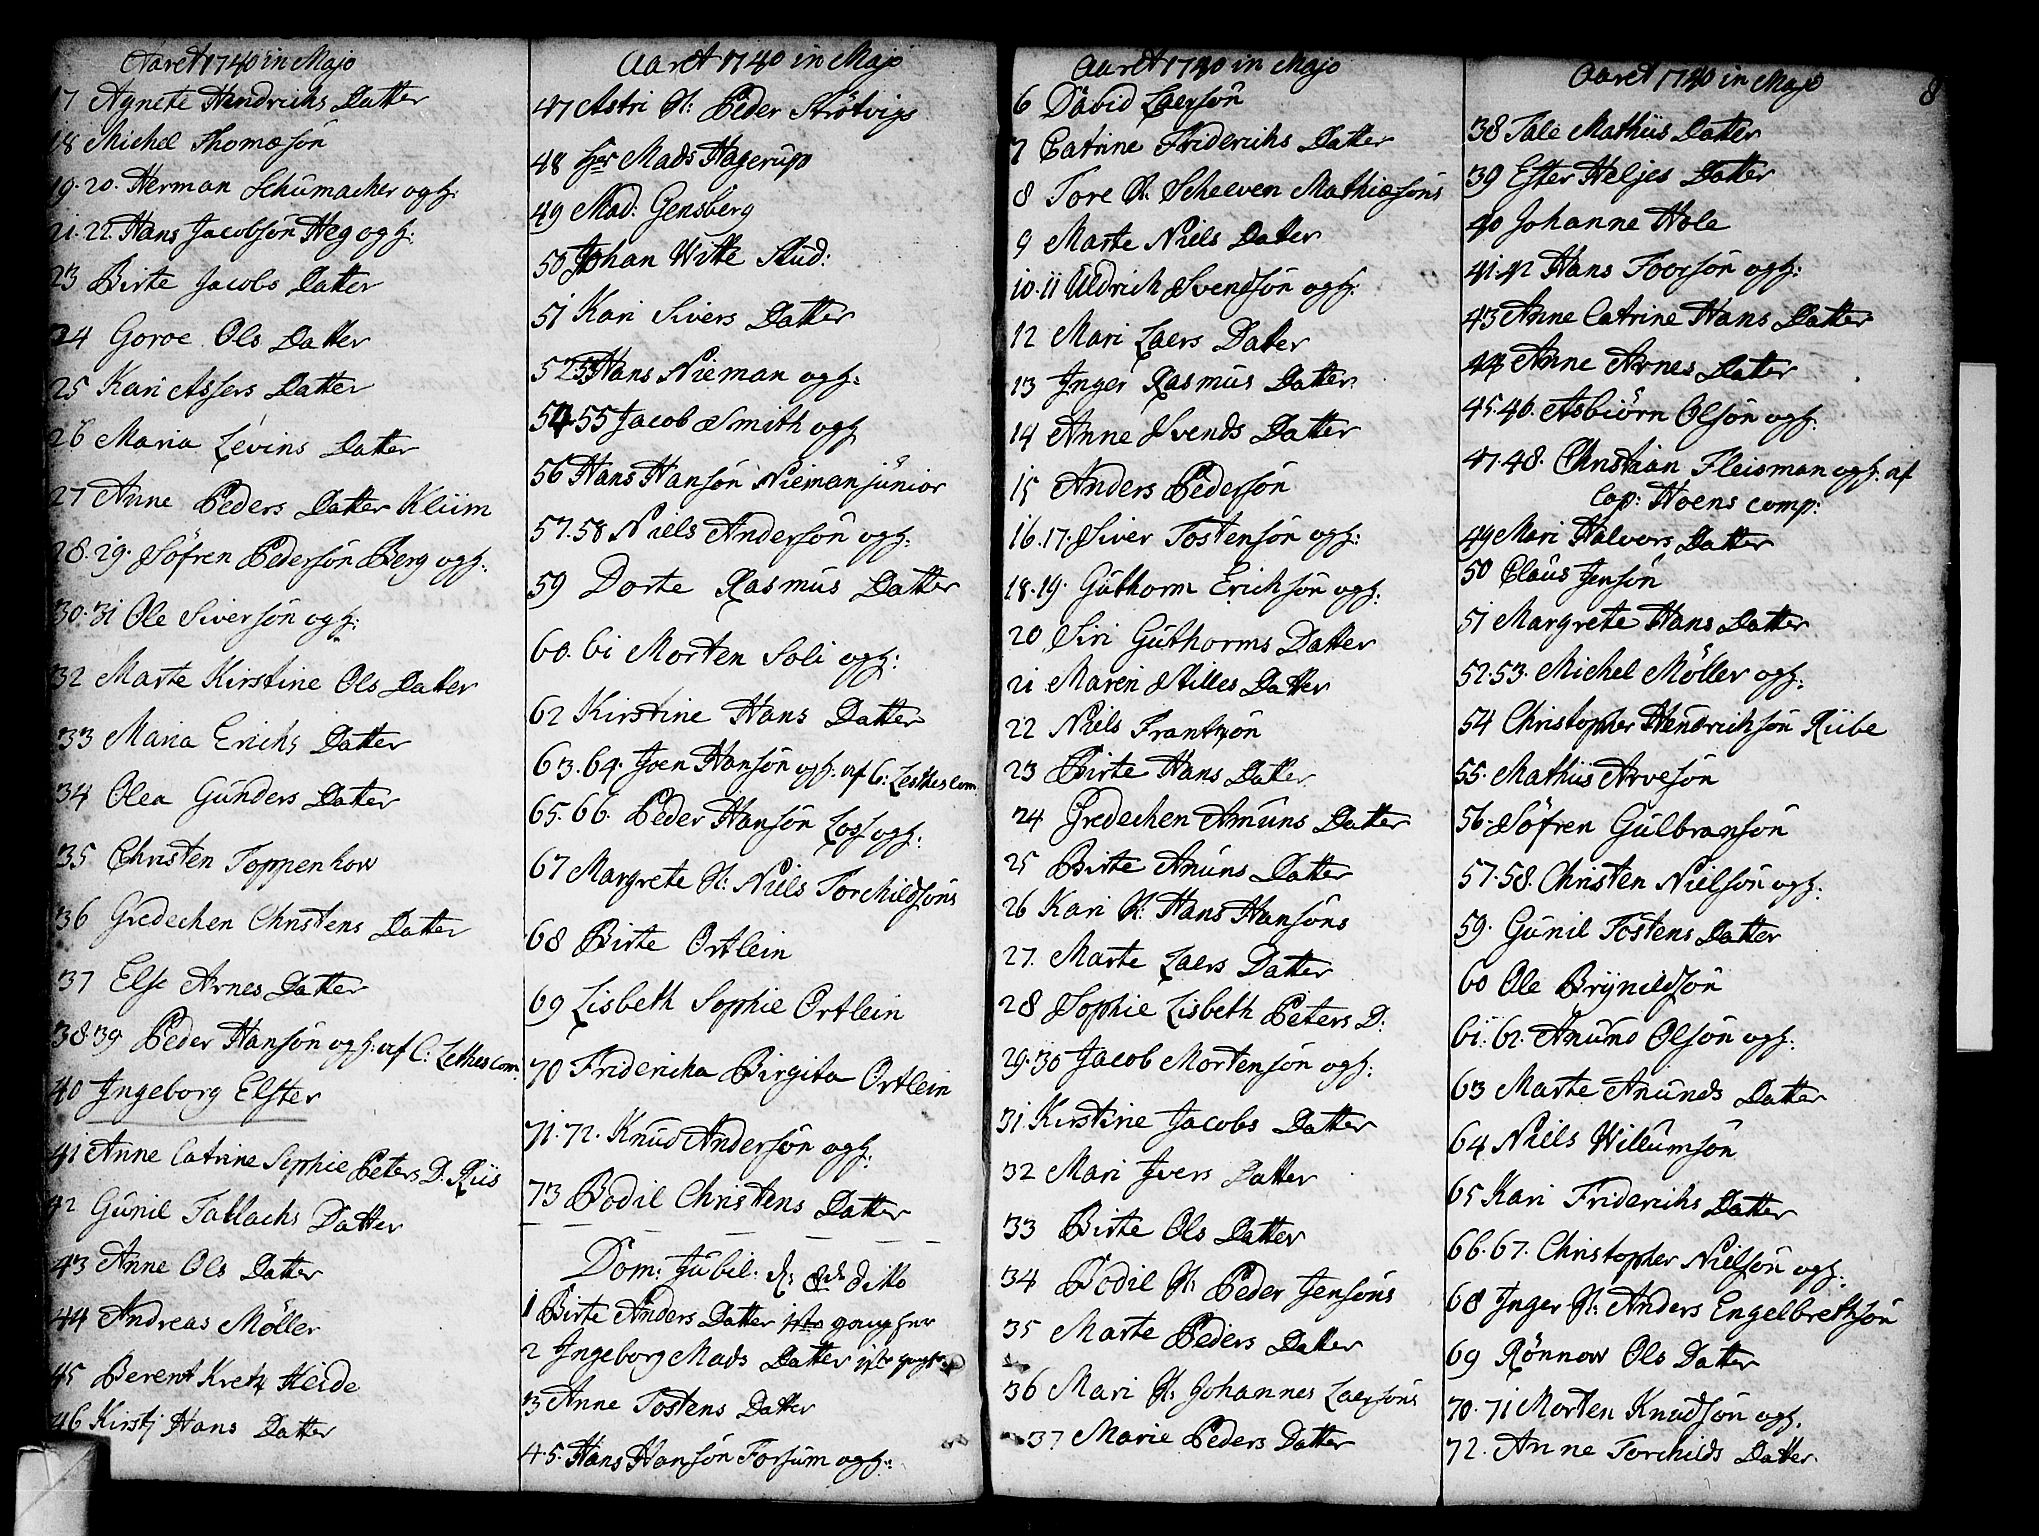 Aaret 1740 in Majo
17 Agnete Hendrichs Datter
18 Michel Thomæsön
19. 20. Herman Schumacher og H:
21. 22. Hans Jacobsön Heg og H:
23 Birte Jacobs Datter
24 Goroe Ols Datter
25 Kari Assers Datter
26 Maria Levins Datter
27 Anne Peders Datter Kliim
28. 29. Söfren Pedersön Berg og H:
30. 31 Ole Siversön og H:
32 Marte Kirstine Ols Datter
33 Maria Erichs Datter
34 Olea Gunders Datter
35 Christen Toppenhow
36 Gredechen Christens Datter
37 Else Arnes Datter
38. 39 Peder Hansön og H: af C: Lethes com.
40 Ingeborg Elster
41 Anne Catrine Sophie Peters D. Riis
42 Gunil Tallachs Datter
43 Anne Ols Datter
44 Andreas Möller
45 Berent Kretz Heide
46 Kirsti Hans Datter
Aaret 1740 in Majo
47 Astri H: Peder Strötvigs
48 Hr Mads Hagerup
49 Mad: Gensberg
50 Johan Witte Stud:
51 Kari Sivers Datter
52 53 Hans Nieman og H:
54 55 Jacob Smith og H
56 Hans Hansön Nieman junior
57. 58 Niels Andersön og H:
59 Dorte Rasmus Datter
60. 61 Morten Soli og H:
62 Kirstine Hans Datter
63. 64. Joen Hansön og H. af C: Lethes com.
65. 66. Peder Hansön Loss og H:
67 Margrete H: Niels Torchildsöns
68 Birte Ortlein
69 Lisbeth Sophie Ortlein
70 Friderica Birgita Ortlein
71. 72. Knud Andersön og H:
73 Bodil Christens Datter
Dom: Jubil: d: 8de ditto
1 Birte Anders Datter iste gang her
2 Ingeborg Mads Datter iste gang h.
3 Anne Tostens Datter
4. 5. Hans Hansön Forsum og H:
Aaret 1740 in Majo
6 David Laersön
7 Catrine Friderichs Datter
8 Tore H: Scheeven Mathiæsöns
9 Marte Niels Datter
10. 11 Uldrich Svendsön og H:
12 Mari Laers Datter
13 Inger Rasmus Datter
14 Anne Svends Datter
15 Anders Pedersön
16. 17. Siver Tostensön og H:
18. 19. Guthorm Erichsön og H:
20 Siri Guthorms Datter
21 Maren Stilles Datter
22 Niels Frantzön
23 Birte Hans Datter
24 Gredechen Amuns Datter
25 Birte Anuns Datter
26 Kari H: Hans Hansöns
27. Marte Laers Datter
28 Sophie Lisbeth Peters D:
29. 30 Jacob Mortensön og H:
31 Kirstine Jacobs Datter
32 Mari Ivers Datter
33 Birte Ols Datter
34 Bodil H: Peder Jensöns
35 Marte Peders Datter
36 Mari H: Johannes Laersöns
37 Marie Peders Datter
Aaret 1740 in Majo 8
38 Tale Mathiis Datter
39 Ester Heljes Datter
40 Johanne Hole
41. 42 Hans Toersön og H:
43 Anne Catrine Hans Datter
44 Anne Arnes Datter
45. 46. Asbiörn Olsön og H:
47. 48. Christian Fleisman og H: af
Cap: Hoens comp:
49 Mari Halvors Datter
50 Claus Jensön
51 Margrete Hans Datter
52. 53. Michel Möller og H:
54 Christopher Hendrichsön Riibe
55. Mathiis Arvesön
56. Söfren Gulbransön
57. 58. Christen Nielsön og H:
59. Gunil Tostens Datter
60 Ole Brynildsön
61. 62. Anund Olsön og H:
63 Marte Anunds Datter
64 Niels Willumsön
65 Kari Friderichs Datter
66. 67. Christopher Nielsön og H:
68 Inger H: Anders Engelbrethsön
69 Rönnow Ols Datter
70. 71 Morten Knudsön og H.
72. Anne Torchilds Datter